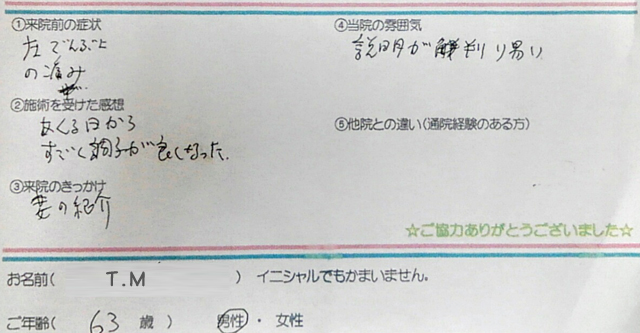 ①来院前の症状
左でんぶ
の痛み
②施術を受けた感想
あくる日から
すごく調子が良くなった。
③来院のきっかけ
妻の紹介
④当院の雰囲気
説明が解り易い
⑤他院との違い(通院経験のある方)
☆ご協力ありがとうございました☆
お名前( T.M ) イニシャルでもかまいません。
ご年齢( 63 歳 ) 男性・女性